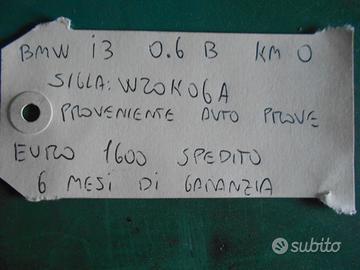 BMW i3 0.6 B KM 0
SIGLA: W20K06A
PROVENIENTE AUTO PROVE
EURO 1600 SPEDITO
6 MESI DI GARANZIA
subito